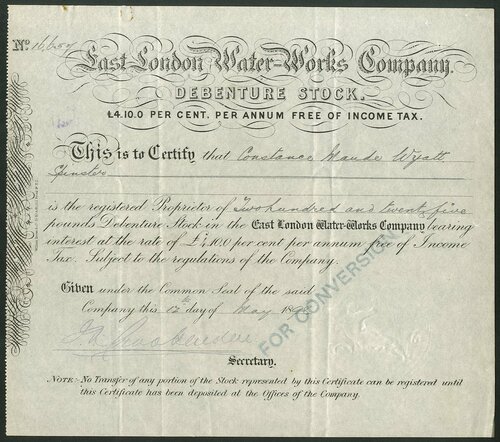 Nº
East London Water-Works Company.
DEBENTURE STOCK.
£4.10.0 PER CENT. PER ANNUM FREE OF INCOME TAX.
This is to Certify that Constance Maude Wyatt
Spinster
is the registered Proprietor of Two hundred and twenty five
pounds Debenture Stock in the East London Water-Works Company bearing
interest at the rate of £4.10.0 per cent per annum free of Income
Tax. Subject to the regulations of the Company.
Given under the Common Seal of the said
Company this 12th day of May
FOR CONVERSION
Secretary.
NOTE:- No Transfer of any portion of the Stock represented by this Certificate can be registered until
this Certificate has been deposited at the Offices of the Company.